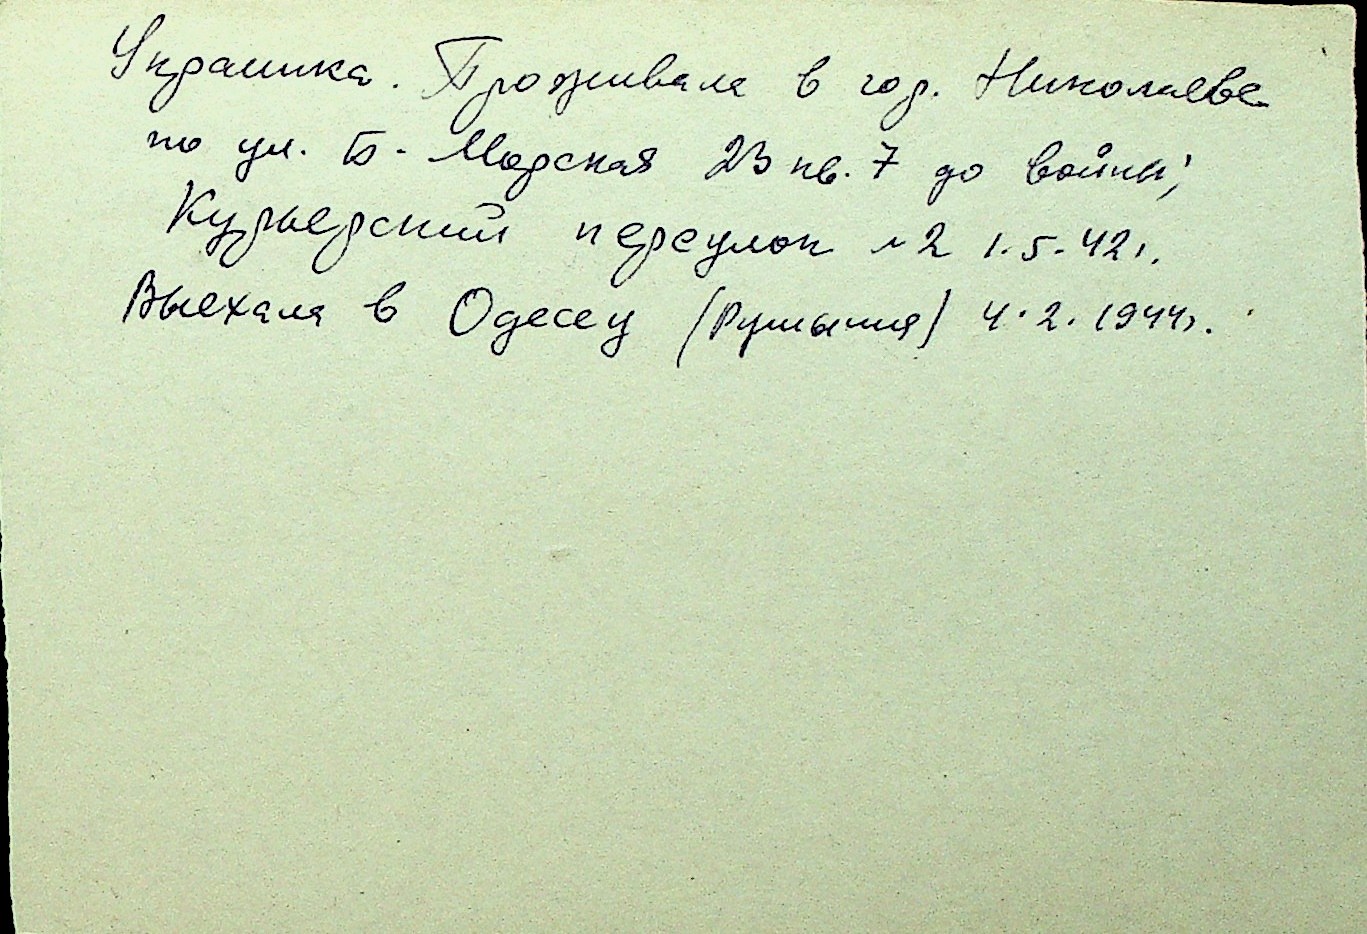 Украинка. Проживала в гор. Николаеве
по ул. Б-Морская 23 кв. 7 до войны;
Курьерский переулок № 2 1.5.42г.
Выехала в Одессу (Румыния) 4.2.1944г.